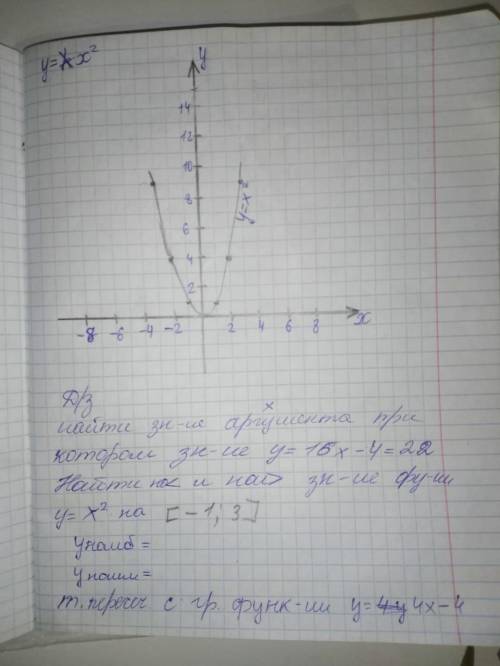 y = x²
y
14
12
10
8
6
4
2
-8 -6 -4 -2 2 4 6 8 x
y=x²
Д/з
x
найти зн-ие аргумента при
котором зн-ие y = 16x - 4 = 22
Найти и зн-ие фу-ии
y = x² на [-1; 3]
y наиб =
y наим =
т. пересеч с гр. функ-ии y = 4x-4